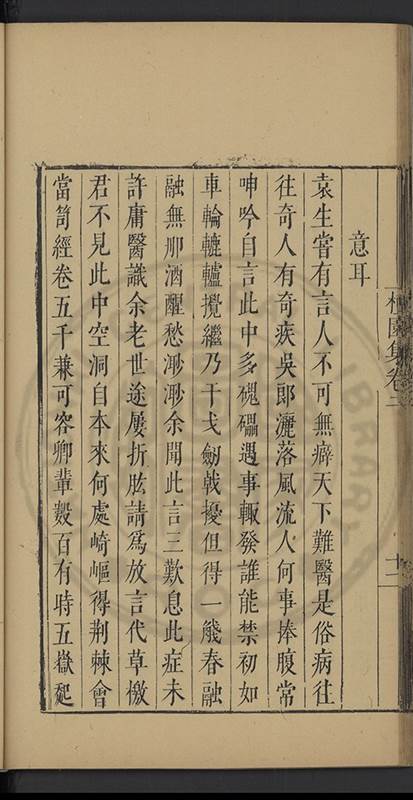 意耳
袁生嘗有言人不可無癖天下難醫是俗病往
往奇人有奇疾吳郎灑落風流人何事捧腹常
呻吟自言此中多磈礧遇事輒發誰能禁初如
車輪轆轤攪繼乃干戈劒戟擾但得一觴春融
融無那酒醒愁渺渺余聞此言三歎息此症未
許庸醫識余老世途屢折肱請爲放言代草檄
君不見此中空洞自本來何處崎嶇得荆棘會
當笥經卷五千兼可容卿輩數百有時五嶽起
園集卷二
十二